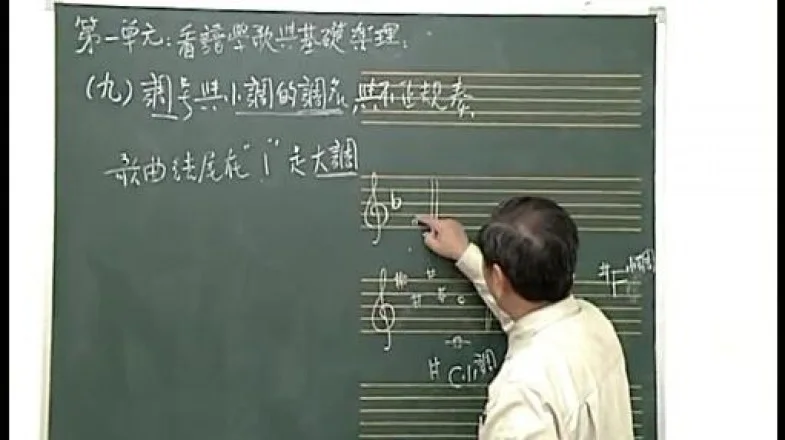 第一單元:看譜學歌與基礎樂理:
(九)調号與小調的調名與不正規奏
歌曲結尾在"1"是大調
b
#F小調
#C小調